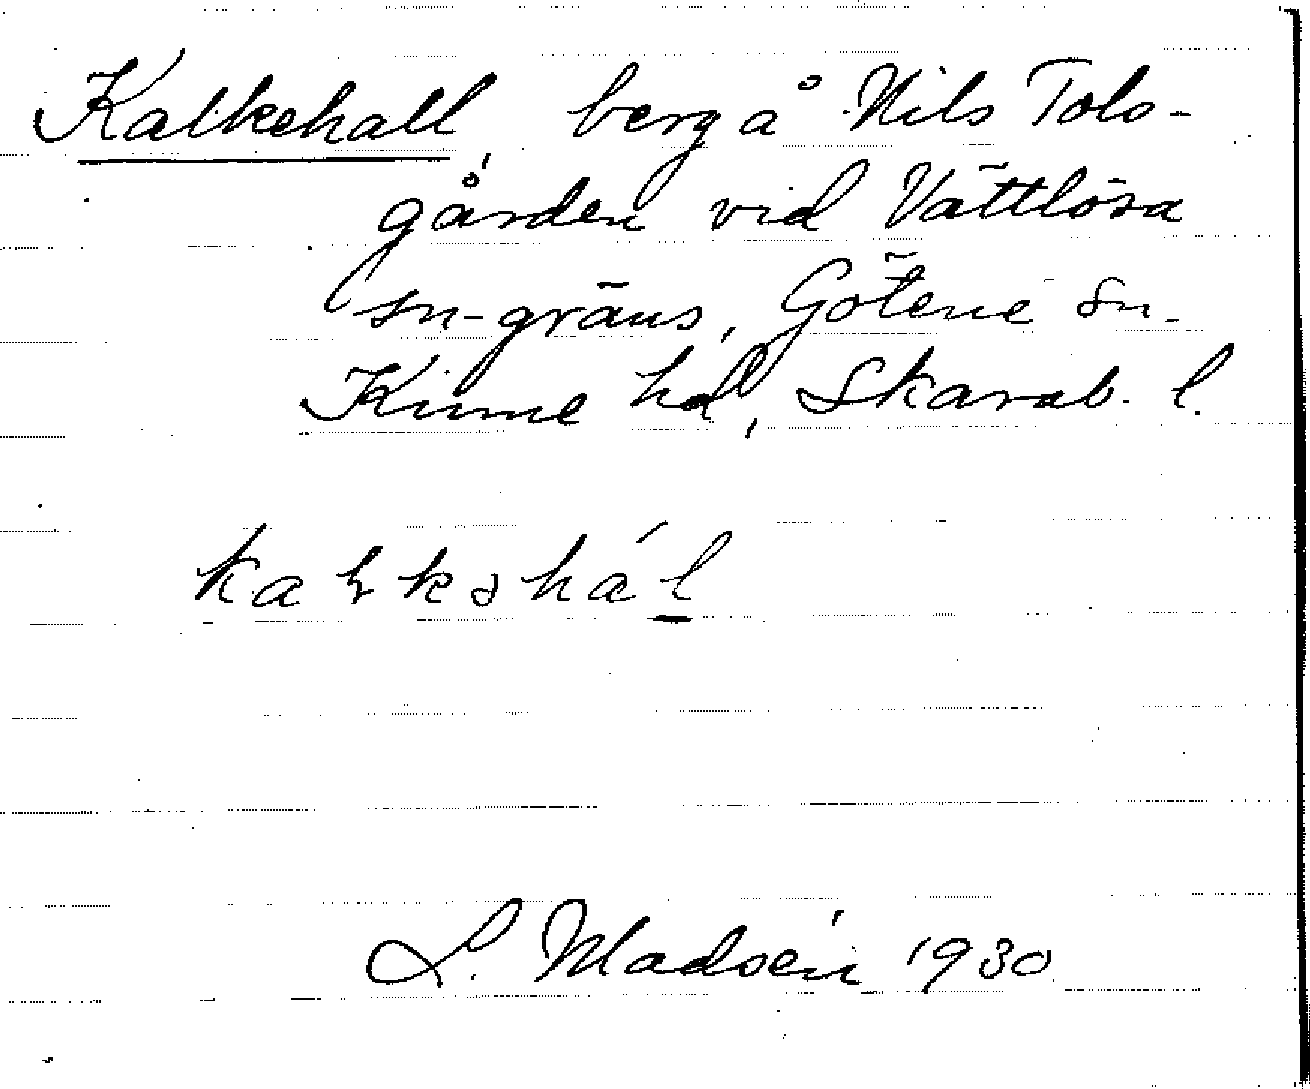 Kalkehall, berg å Nils Tols-
gården vid Vättlösa
sn-gräns, Götene sn.
Kinne hd, Skarab. l.
kaɫkəhál
L. Madsén 1930